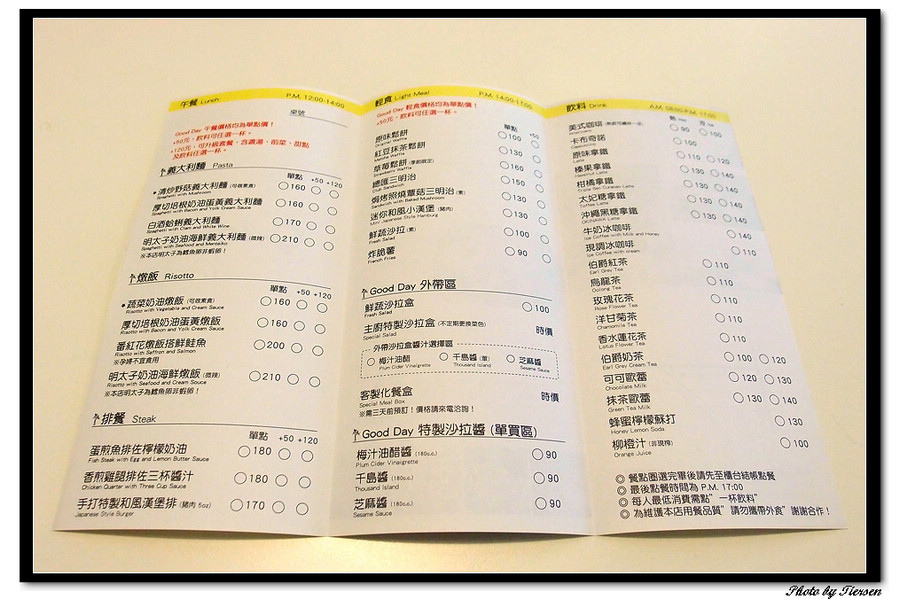 午餐 Lunch P.M. 12:00-14:00
桌號
Good Day 午餐價格均為單點價！
+50元，飲料可任選一杯。
+120元，可升級套餐，含濃湯、前菜、甜點
及飲料任選一杯。
義大利麵 Pasta
單點 +50 +120
清炒野菇義大利麵 (可做素食) 160
Spaghetti with Mushroom
厚切培根奶油蛋黃義大利麵 160
Spaghetti with Bacon and Yolk Cream Sauce
白酒蛤蜊義大利麵 170
Spaghetti with Clam and White Wine
明太子奶油海鮮義大利麵 (微辣) 210
Spaghetti with Seafood and Mentaiko
※本店明太子為鱈魚卵非蝦卵！
燉飯 Risotto
單點 +50 +120
蔬菜奶油燉飯 (可做素食) 160
Risotto with Vegetable and Cream Sauce
厚切培根奶油蛋黃燉飯 160
Risotto with Bacon and Yolk Cream Sauce
番紅花燉飯搭鮮鮭魚 200
Risotto with Saffron and Salmon
※孕婦不宜食用
明太子奶油海鮮燉飯 (微辣) 210
Risotto with Seafood and Cream Souce
※本店明太子為鱈魚卵非蝦卵！
排餐 Steak
單點 +50 +120
蛋煎魚排佐檸檬奶油 180
Fish Steak with Egg and Lemon Butter Sauce
香煎雞腿排佐三杯醬汁 180
Chicken Quarter with Three Cup Sauce
手打特製和風漢堡排 (豬肉 5oz) 170
Japanese Style Burger
輕食 Light Meal P.M. 14:00-17:00
Good Day 輕食價格均為單點價！
+50元，飲料可任選一杯。
單點 +50
原味鬆餅 100
Original Waffle
紅豆抹茶鬆餅 130
Matcha Waffle
草莓鬆餅 (季節限定) 160
Strawberry Waffle
總匯三明治 150
Club Sandwich
焗烤照燒蕈菇三明治 (素) 130
Sandwich with Baked Mushroom
迷你和風小漢堡 (豬肉) 130
Mini Japanese Style Hamburg
鮮蔬沙拉 (素) 100
Fresh Salad
炸脆薯 90
French Fries
Good Day 外帶區
鮮蔬沙拉盒 100
Fresh Salad
主廚特製沙拉盒 (不定期更換菜色) 時價
Special Salad
外帶沙拉盒醬汁選擇區
梅汁油醋 千島醬 (葷) 芝麻醬
Plum Cider Vinaigrette Thousand Island Sesame Sauce
客製化餐盒 時價
Special Meal Box
※需三天前預訂！價格請來電洽詢！
Good Day 特製沙拉醬 (單買區)
梅汁油醋醬 (180c.c.) 90
Plum Cider Vinaigrette
千島醬 (180c.c.) 90
Thousand Island
芝麻醬 (180c.c.) 90
Sesame Sauce
飲料 Drink A.M. 08:00-P.M. 17:00
熱 冰
美式咖啡 90 100
Americano
卡布奇諾 100
原味拿鐵 110 120
Latte
榛果拿鐵 130 140
Hazelnut Latte
柑橘拿鐵 130 140
太妃糖拿鐵 130 140
Toffee Latte
沖繩黑糖拿鐵 130 140
OKINAWA Latte
牛奶冰咖啡 140
Ice Coffee with Milk and Honey
現調冰咖啡 110
Ice Coffee with cream
伯爵紅茶 110
Earl Grey Tea
烏龍茶 110
Oolong Tea
玫瑰花茶 110
Rose Flower Tea
洋甘菊茶 110
Chamomile Tea
香水蓮花茶 110
Lotus Flower Tea
伯爵奶茶 100 120
Earl Grey Cream Tea
可可歐蕾 120 130
Chocolate Milk
抹茶歐蕾 130 140
Green Tea Milk
蜂蜜檸檬蘇打 130
Honey Lemon Soda
柳橙汁 (非現榨) 100
Orange Juice
◎ 餐點圈選完畢後請先至櫃台結帳點餐
◎ 最後點餐時間為 P.M. 17:00
◎ 每人最低消費需點”一杯飲料”
◎ 為維護本店用餐品質”請勿攜帶外食”謝謝合作！
Photo by Tiersen